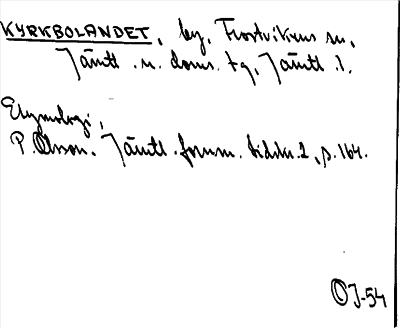 KYRKBOLANDET, by, Frostvikens sn,
Jämtl. n. doms. tg, Jämtl. l.
Etymologi,
P. Olsson. Jämtl. fornm. tidskr. 2, s. 164.
OJ-54